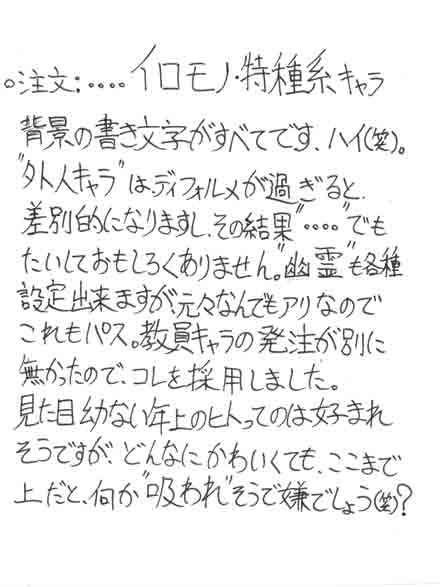 ○注文:‥‥イロモノ・特種系キャラ
背景の書き文字がすべてです、ハイ(笑)。
"外人キャラ"は、ディフォルメが過ぎると、
差別的になりますし、その結果"‥‥"でも
たいしておもしろくありません。"幽霊"も各種
設定出来ますが、元々なんでもアリなので
これもパス。教員キャラの発注が別に
無かったので、コレを採用しました。
見た目幼ない年上のヒトってのは好まれ
そうですが、どんなにかわいくても、ここまで
上だと、何か"吸われ"そうで嫌でしょう(笑)?